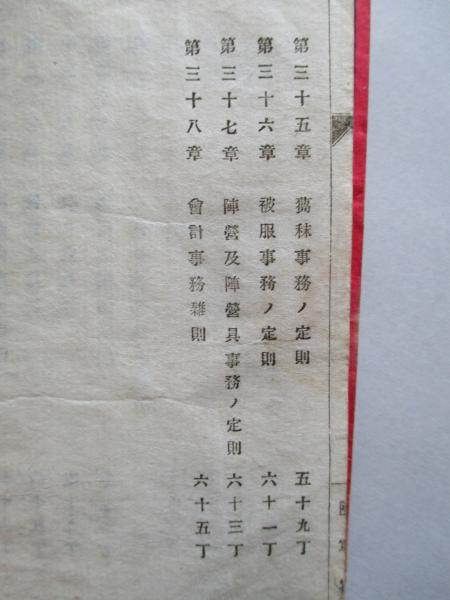 第三十五章 蒭秣事務ノ定則 五十九丁
第三十六章 被服事務ノ定則 六十一丁
第三十七章 陣營及陣營具事務ノ定則 六十三丁
第三十八章 會計事務雜則 六十五丁